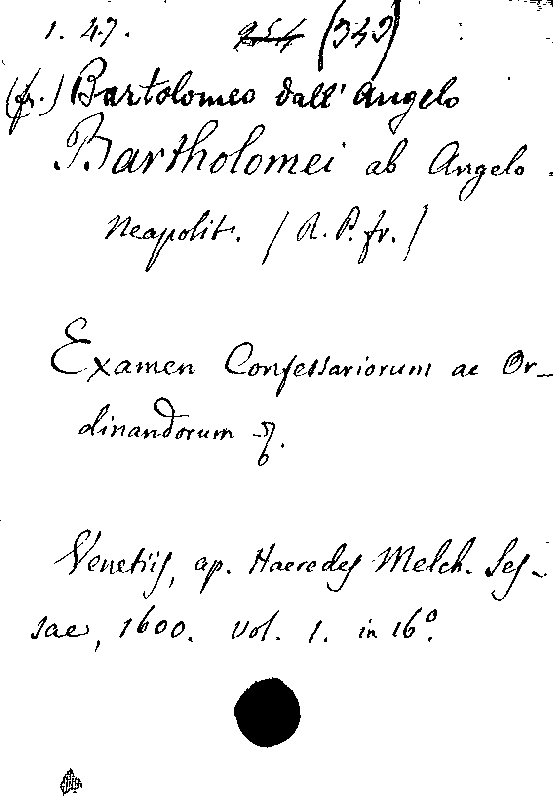 1. 47. (343)
(fr.) Bartolomeo dall' Angelo
Bartholomei ab Angelo
Neapolit. / R. P. fr. /
Examen Confessariorum ac Or-
dinandorum
Venetiis, ap. Haeredes Melch. Ses-
sae, 1600. vol. 1. in 16º.